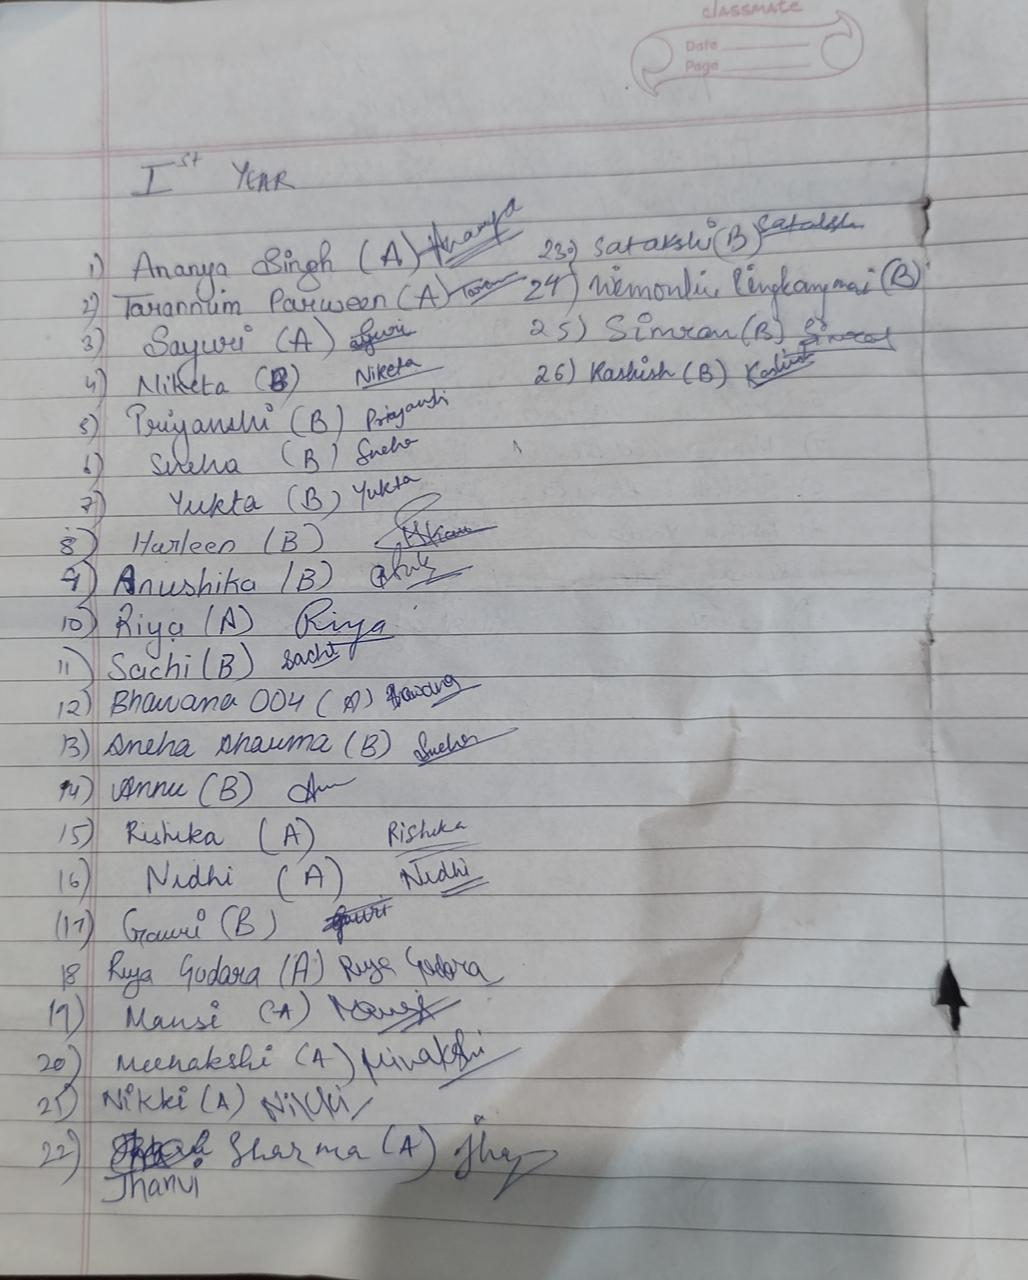 classmate
Date
Page
Ist YEAR
1) Ananya Singh (A) Ananya
2) Tarannum Parween (A) Taran
3) Sayuri (A)
4) Niketa (B) Niketa
5) Priyanshi (B) Priyanshi
6) Sneha (B) Sneha
7) Yukta (B) Yukta
8) Harleen (B)
9) Anushika (B)
10) Riya (A) Riya
11) Sachi (B) Sachi
12) Bhawana 004 (A) Bhawana
13) Sneha Sharma (B) Sneha
14) Annu (B)
15) Rishika (A) Rishika
16) Nidhi (A) Nidhi
(17) Gauri (B) Gauri
18 Riya Godara (A) Riya Godara
19) Mansi (A) Mansi
20) Meenakshi (A) Minakshi
21) Nikki (A) Nikki
22) Sharma (A)
Jhanvi
23) Satakshi (B) Satakshi
24) (B)
25) Simran (B) Simran
26) Kashish (B) Kashish